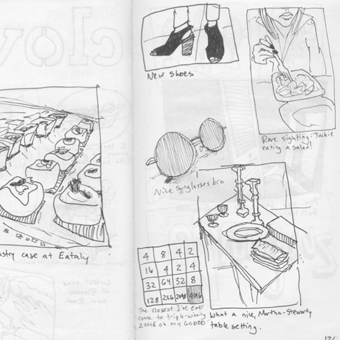 stry case at Eataly
New shoes
Rare sighting: Jackie
eating a salad!
Nice sunglasses bro
4 8 4 2
16 4 2 4
32 64 32 8
128 256
The closest I've
come to
2048 oh my
What a nice, Martha-Stewarty
table setting.